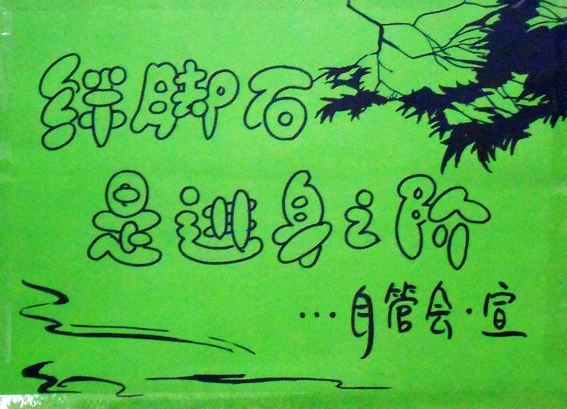 绊脚石
是进身之阶
···自管会·宣